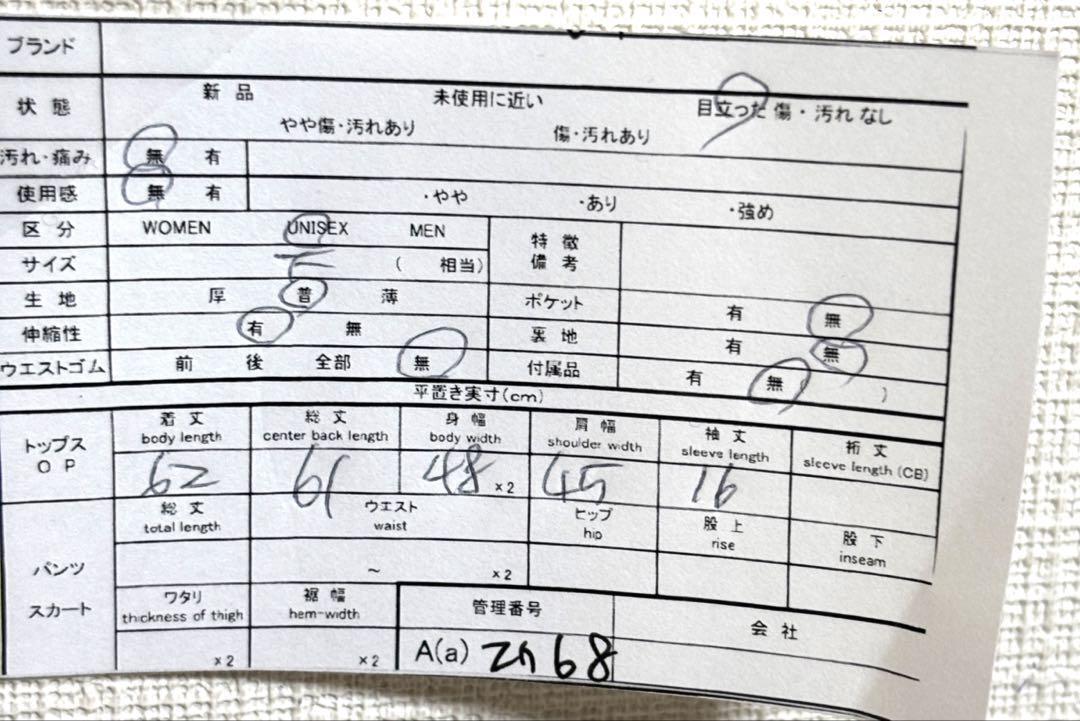 ブランド
状態 新品 未使用に近い 目立った傷・汚れなし
やや傷・汚れあり 傷・汚れあり
汚れ・痛み 無 有
使用感 無 有 ・やや ・あり ・強め
区分 WOMEN UNISEX MEN 特徴
サイズ ( 相当) 備考
生地 厚 普 薄 ポケット 有 無
伸縮性 有 無 裏地 有 無
ウエストゴム 前 後 全部 無 付属品 有 無 )
平置き実寸(cm)
トップス 着丈 総丈 身幅 肩幅 袖丈 裄丈
OP body length center back length body width shoulder width sleeve length sleeve length (CB)
62 61 48 ×2 45 16
総丈 ウエスト ヒップ 股上 股下
total length waist hip rise inseam
パンツ ~ ×2
スカート ワタリ 裾幅 管理番号 会社
thickness of thigh hem-width
×2 ×2 A(a) 68